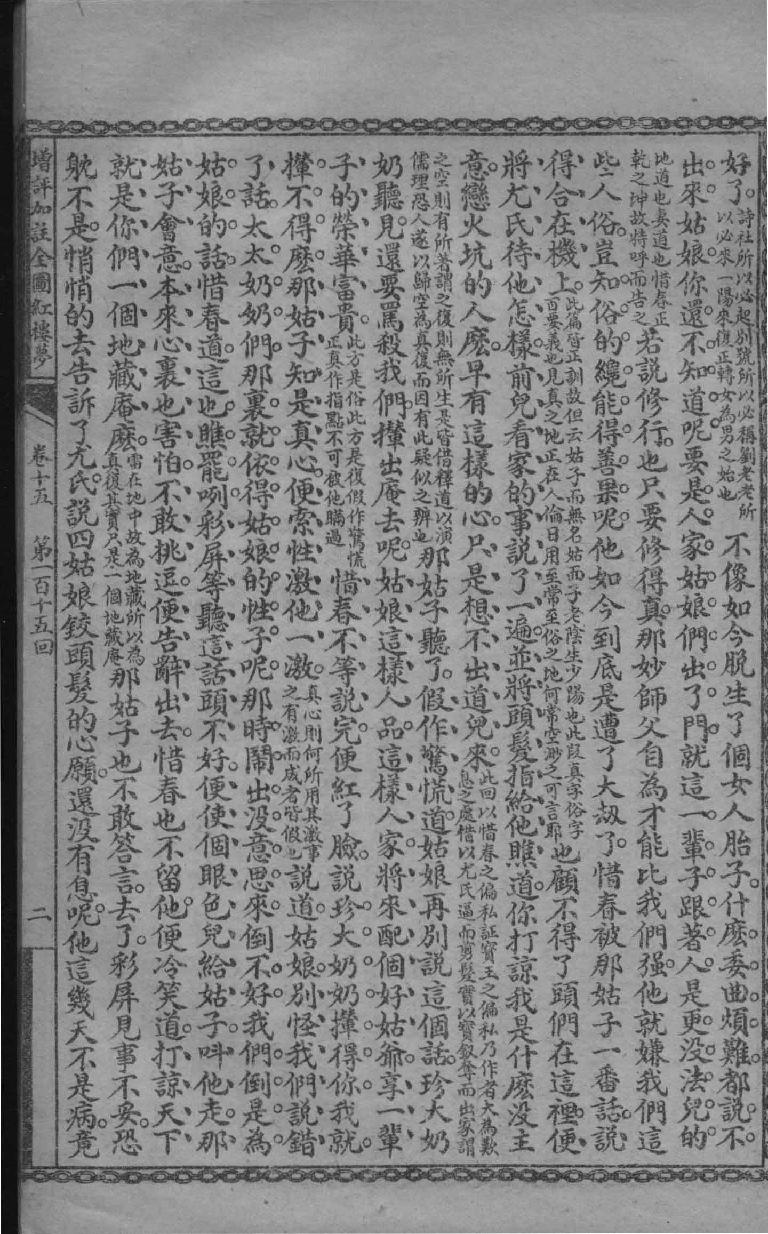 好了詩社所以必起別號所以必稱劉老老所以必來一陽來復正轉女為男之始也不像如今脫生了個女人胎子什麽委曲煩難都說不
出來姑娘你還不知道呢要是人家姑娘們出了門就這一輩子跟著人是更沒法兒的
地道也妻道也惜春正乾之坤故特呼而告之若說修行也只要修得真那妙師父自為才能比我們强他就嫌我們這
些人俗豈知俗的纔能得善果呢他如今到底是遭了大刼了惜春被那姑子一番話說
得合在機上此篇皆正訓故但云姑子而無名姑而子老陰生少陽也此段真字俗字百要義也見真之地正在人倫日用至常至俗之地何常空渺之可言耶也顧不得了頭們在這裡便
將尤氏待他怎樣前兒看家的事說了一遍並將頭髮指給他瞧道你打諒我是什麽没主
意戀火坑的人麽早有這樣的心只是想不出道兒來此回以惜春之偏私証寶玉之偏私乃作者大為歎息之處惜以尤氏逼而剪髮實以寶釵奪而出家謂
之空則有所著謂之復則無所生是皆借釋道以演儒理恐人遂以歸空為真復而因有此疑似之辨也那姑子聽了假作驚慌道姑娘再別說這個話珍大奶
奶聽見還要罵殺我們攆出庵去呢姑娘這樣人品這樣人家將來配個好姑爺享一輩
子的榮華富貴此方是俗此方是復假作驚慌正真作指點不可被他瞞過惜春不等說完便紅了臉說珍大奶奶攆得你我就
攆不得麽那姑子知是真心便索性激他一激真心則何所用其激事之有激而成者皆假也說道姑娘別怪我們說錯
了話太太奶奶們那裏就依得姑娘的性子呢那時鬧出没意思來倒不好我們倒是為
姑娘的話惜春道這也瞧罷咧彩屏等聽這話頭不好便使個眼色兒給姑子呌他走那
姑子會意本來心裏也害怕不敢挑逗便告辭出去惜春也不留他便冷笑道打諒天下
就是你們一個地藏庵麽雷在地中故為地藏所以為真復其實只是一個地藏庵那姑子也不敢答言去了彩屏見事不妥恐
躭不是悄悄的去告訴了尤氏說四姑娘鉸頭髮的心願還没有息呢他這幾天不是病竟
增評加註全圖紅樓夢
卷十五
第一百十五回
二